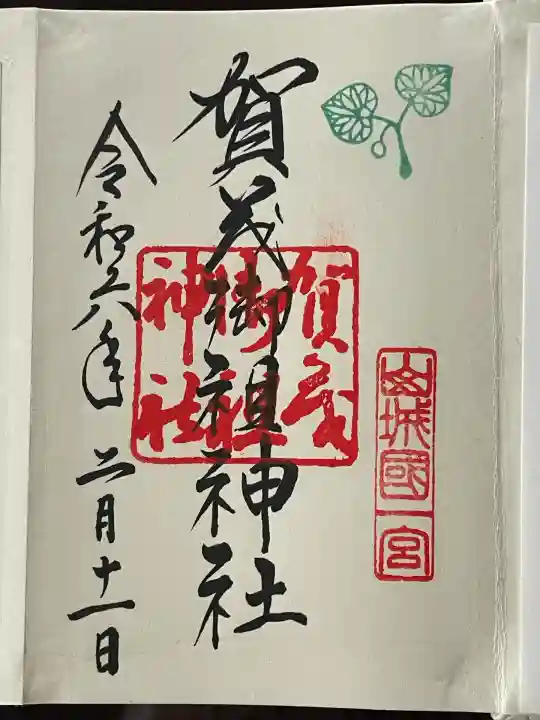 山城國一宮
賀茂御祖神社
賀茂
御祖
神社
令和六年二月十一日